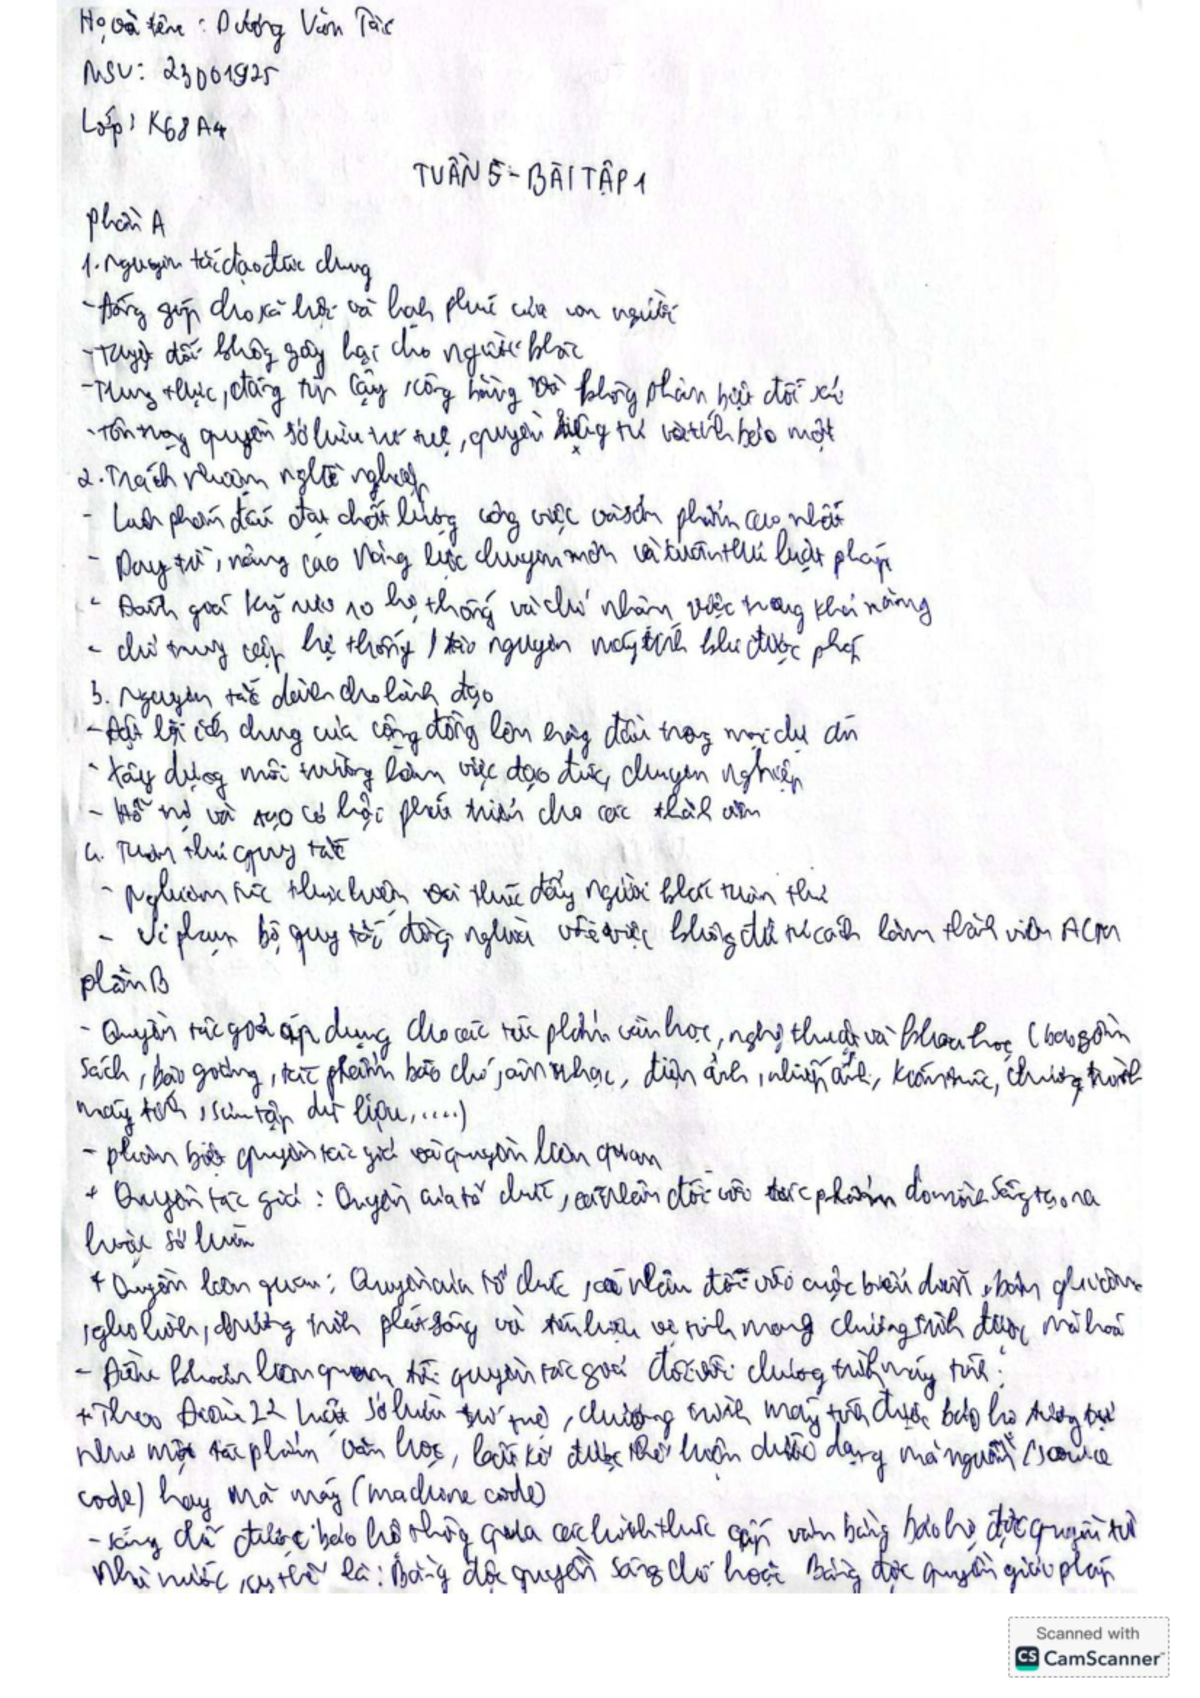 Họ và tên : Dương Văn Tài
MSV: 23001925
Lớp: K68A4
TUẦN 5 - BÀI TẬP 1
phần A
1. Nguyên tắc đạo đức chung
- Đóng góp cho xã hội và hạnh phúc của con người
- Tuyệt đối không gây hại cho người khác
- Trung thực, đáng tin cậy, công bằng và không phân biệt đối xử
- Tôn trọng quyền sở hữu trí tuệ, quyền riêng tư và tính bảo mật
2. Trách nhiệm nghề nghiệp
- Luôn phấn đấu đạt chất lượng công việc và sản phẩm cao nhất
- Duy trì, nâng cao năng lực chuyên môn và tuân thủ luật pháp
- Đánh giá kỹ rủi ro hệ thống và chỉ nhận việc trong khả năng
- chỉ truy cập hệ thống / tài nguyên máy tính khi được phép
3. Nguyên tắc dành cho lãnh đạo
- Đặt lợi ích chung của cộng đồng lên hàng đầu trong mọi dự án
- Xây dựng môi trường làm việc đạo đức, chuyên nghiệp
- Hỗ trợ và tạo cơ hội phát triển cho các thành viên
4. Tuân thủ quy tắc
- Nghiêm túc thực hiện và thúc đẩy người khác tuân thủ
- Vi phạm bộ quy tắc đồng nghĩa với việc không đủ tư cách làm thành viên ACM
phần B
- Quyền tác giả áp dụng cho các tác phẩm văn học, nghệ thuật và khoa học (bao gồm
sách, bài giảng, tác phẩm báo chí, âm nhạc, điện ảnh, nhiếp ảnh, kiến trúc, chương trình
máy tính, sưu tập dữ liệu,....)
- phân biệt quyền tác giả và quyền liên quan
+ Quyền tác giả : Quyền của tổ chức, cá nhân đối với tác phẩm do mình sáng tạo ra
hoặc sở hữu
+ Quyền liên quan: Quyền của tổ chức, cá nhân đối với cuộc biểu diễn, bản ghi âm
, ghi hình, chương trình phát sóng và tín hiệu vệ tinh mang chương trình được mã hoá
- Điều khoản liên quan tới quyền tác giả đối với chương trình máy tính:
+ Theo Điều 22 Luật Sở hữu trí tuệ, chương trình máy tính được bảo hộ tương tự
như một tác phẩm văn học, bất kể được thể hiện dưới dạng mã nguồn (source
code) hay mã máy (machine code)
- sáng chế được bảo hộ thông qua các hình thức cấp văn bằng bảo hộ độc quyền từ
Nhà nước, cụ thể là: Bằng độc quyền sáng chế hoặc Bằng độc quyền giải pháp
Scanned with
CS CamScanner